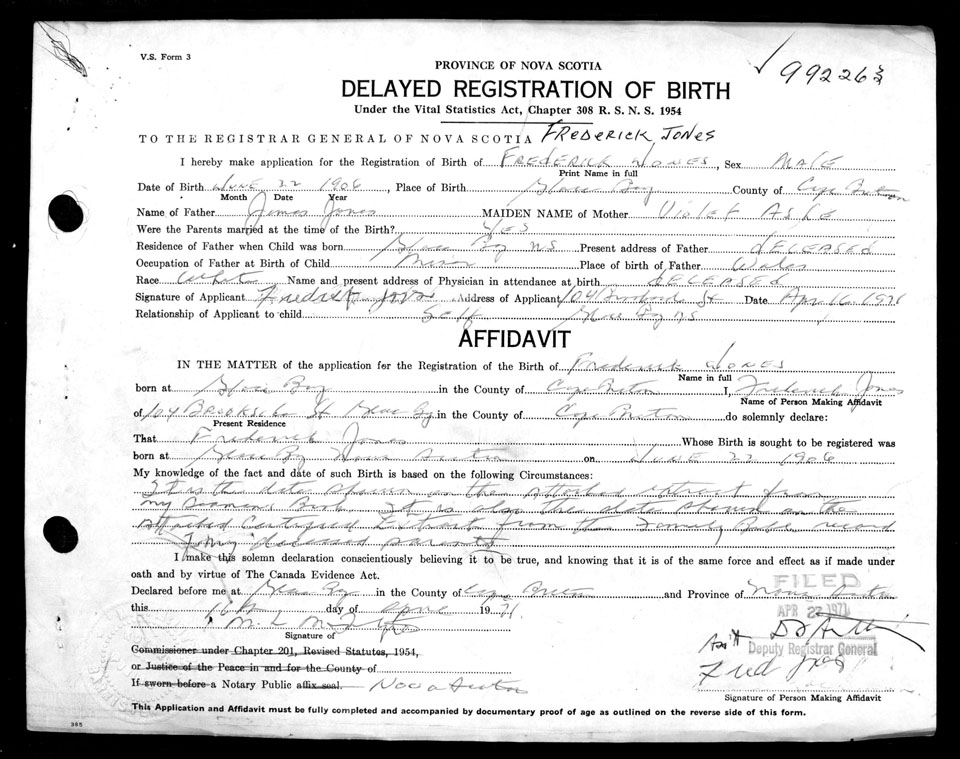 V.S. Form 3
PROVINCE OF NOVA SCOTIA
99226½
DELAYED REGISTRATION OF BIRTH
Under the Vital Statistics Act, Chapter 308 R. S. N. S. 1954
TO THE REGISTRAR GENERAL OF NOVA SCOTIA FREDERICK JONES
I hereby make application for the Registration of Birth of FREDERICK JONES, Sex MALE
Print Name in full
Date of Birth JUNE 22 1906, Place of Birth Glace Bay County of Cape Breton
Month Date Year
Name of Father James Jones MAIDEN NAME of Mother Violet
Were the Parents married at the time of the Birth? YES
Residence of Father when Child was born Glace Bay NS Present address of Father DECEASED
Occupation of Father at Birth of Child Miner Place of birth of Father Wales
Race White Name and present address of Physician in attendance at birth DECEASED
Signature of Applicant Fredrick Jones Address of Applicant 104 Brookside St Date Apr 16 1971
Relationship of Applicant to child Self Glace Bay NS
AFFIDAVIT
IN THE MATTER of the application for the Registration of the Birth of Frederick JONES
Name in full
born at Glace Bay in the County of Cape Breton I, Frederick Jones
Name of Person Making Affidavit
of 104 Brookside St Glace Bay in the County of Cape Breton do solemnly declare:
Present Residence
That Frederick Jones Whose Birth is sought to be registered was
born at Glace Bay Nova Scotia on JUNE 22 1906
My knowledge of the fact and date of such Birth is based on the following Circumstances:
It is the date shown on the attached extract from
my Book. It is also the date shown on the
attached Certified Extract from the Family Bible record
of my deceased parents
I make this solemn declaration conscientiously believing it to be true, and knowing that it is of the same force and effect as if made under
oath and by virtue of The Canada Evidence Act.
Declared before me at Glace Bay in the County of Cape Breton and Province of Nova Scotia
FILED
this 16th day of April 1971
APR 27 1971
Signature of
Ass't Deputy Registrar General
Commissioner under Chapter 201, Revised Statutes, 1954,
or Justice of the Peace in and for the County of
Fred Jones
If sworn before a Notary Public affix seal. Nova Scotia
Signature of Person Making Affidavit
This Application and Affidavit must be fully completed and accompanied by documentary proof of age as outlined on the reverse side of this form.
385